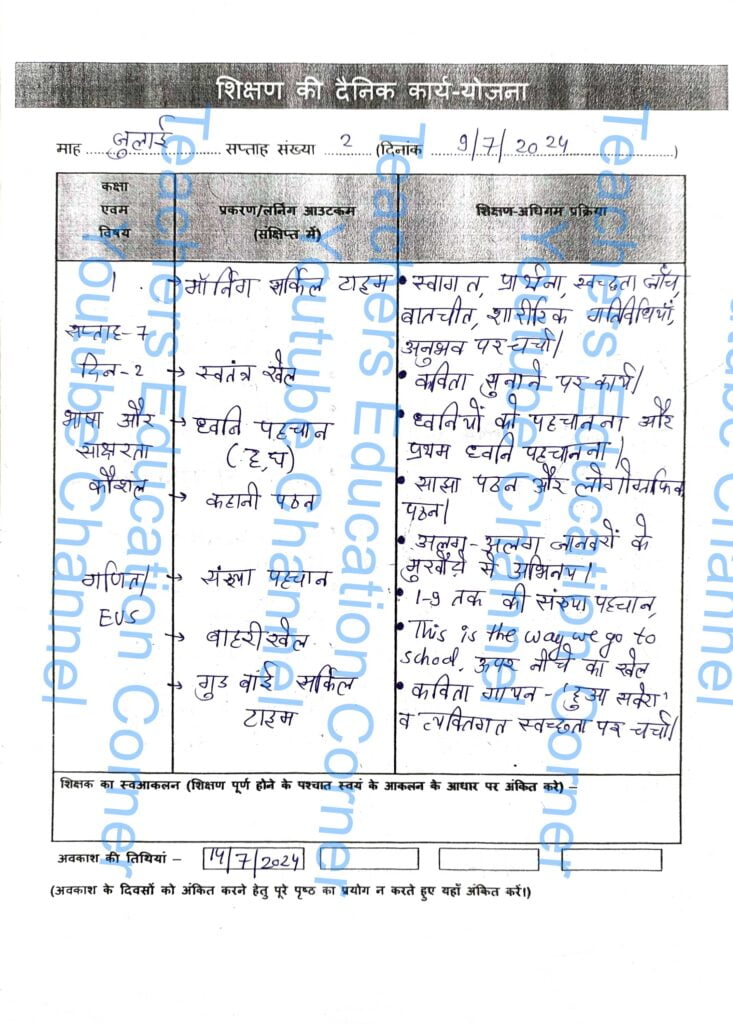 शिक्षण की दैनिक कार्य-योजना
माह जुलाई सप्ताह संख्या 2 (दिनांक 9/7/2024)
कक्षा एवम विषय
प्रकरण/लर्निग आउटकम (संक्षिप्त में)
शिक्षण-अधिगम प्रक्रिया
1
सप्ताह-7
दिन-2
भाषा और
साक्षरता
कौशल
गणित/
EVS
→ मॉर्निग सर्किल टाइम
→ स्वतंत्र खेल
→ ध्वनि पहचान
(ह,घ)
→ कहानी पठन
→ संख्या पहचान
→ बाहरी खेल
→ गुड बाई सर्किल
टाइम
• स्वागत, प्रार्थना, स्वच्छता जाँच,
बातचीत, शारीरिक गतिविधियाँ,
अनुभव पर चर्चा।
• कविता सुनाने पर कार्य।
• ध्वनियों को पहचानना और
प्रथम ध्वनि पहचानना।
• साझा पठन और लोगोग्राफिक
पठन।
• अलग-अलग जानवरों के
मुखौटे से अभिनय।
• 1-9 तक की संख्या पहचान,
• This is the way we go to
school, ऊपर नीचे का खेल
• कविता गायन - 'हुआ सवेरा'
व व्यक्तिगत स्वच्छता पर चर्चा।
शिक्षक का स्वआकलन (शिक्षण पूर्ण होने के पश्चात स्वयं के आकलन के आधार पर अंकित करे) –
अवकाश की तिथियां – 14/7/2024
(अवकाश के दिवसों को अंकित करने हेतु पूरे पृष्ठ का प्रयोग न करते हुए यहाँ अंकित करें।)
Teachers Education Corner
Youtube Channel
Teachers Education Corner
Youtube Channel
Teachers Education Corner
Youtube Channel